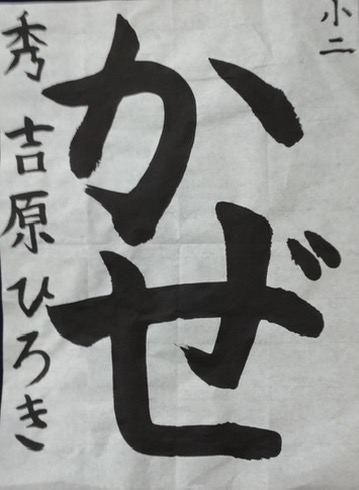 小二
かぜ
秀吉原ひろき